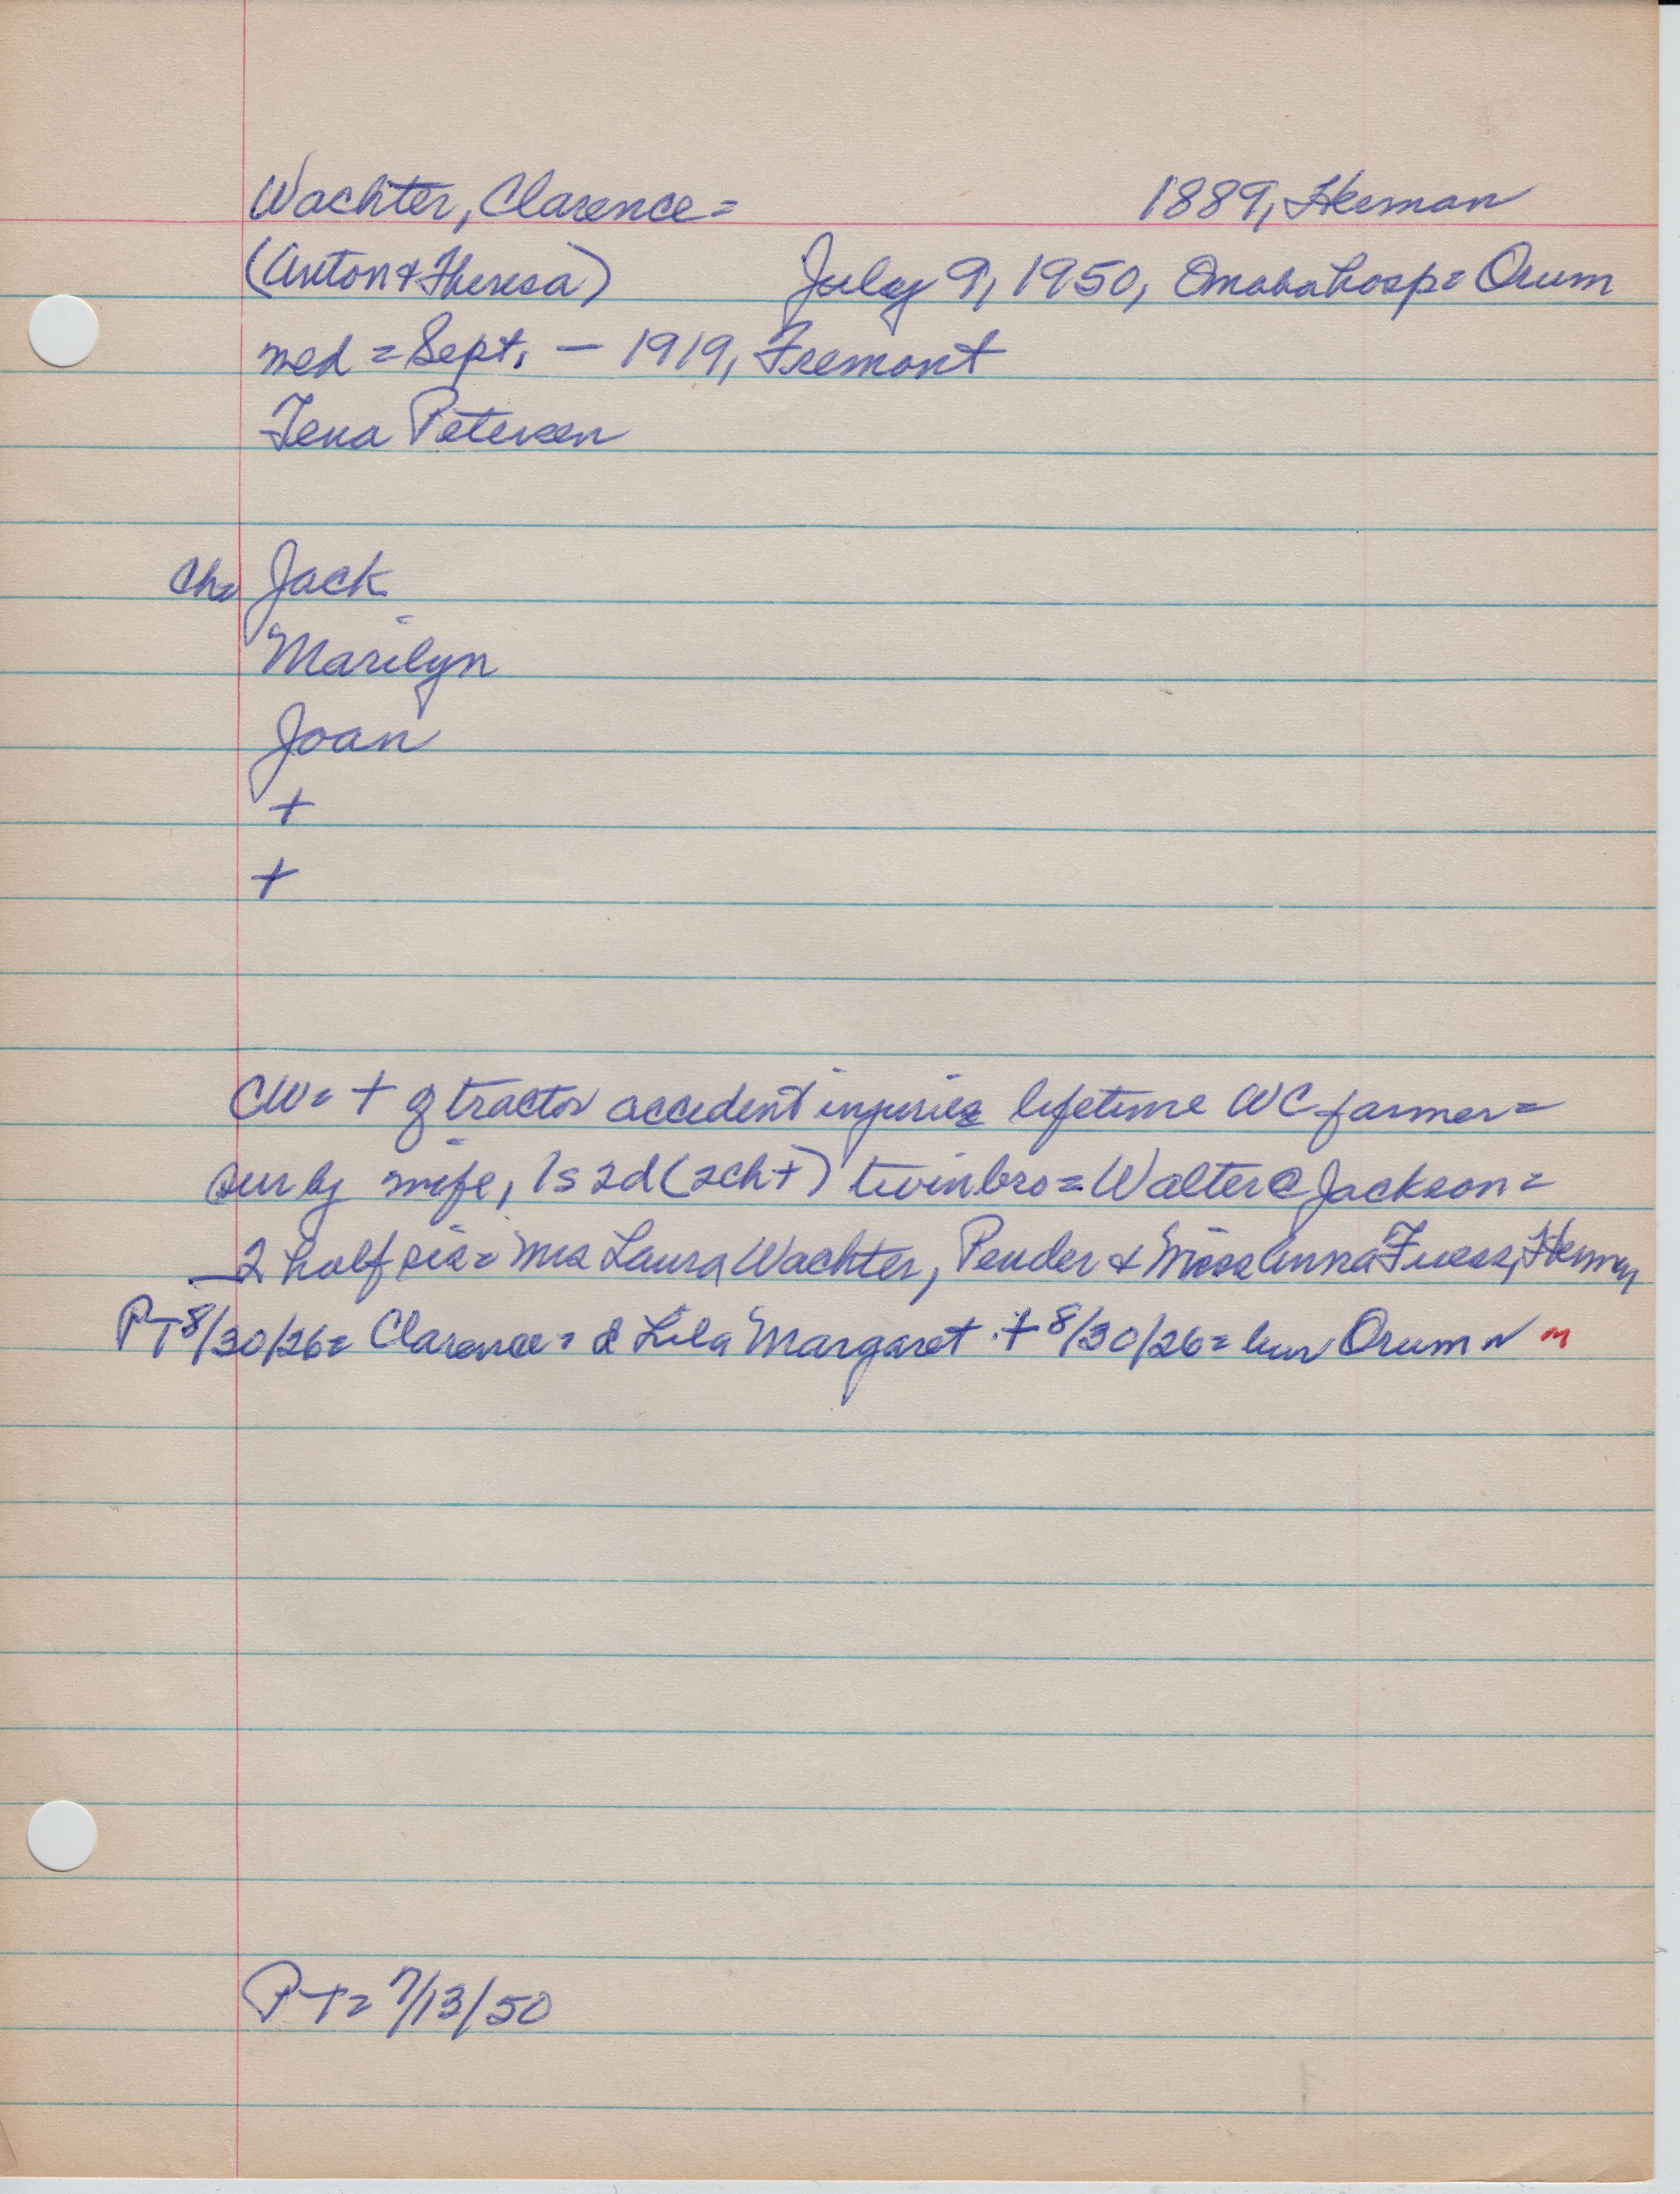 Wachter, Clarence = 1889, Herman
(Anton & Theresa) July 9, 1950, Omaha hosp = Orum
med = Sept. — 1919, Fremont
Tena Petersen
Ch = Jack
Marilyn
Joan
+
+
CW = + of tractor accident injuries lifetime WC farmer =
sur by wife, 1s 2d (2ch+) twin bro = Walter @ Jackson =
2 half sis = Mrs Laura Wachter, Pender & Miss Anna Herman
PT 8/30/26 = Clarence = d Lila Margaret + 8/30/26 = bur Orum
PT = 7/13/50